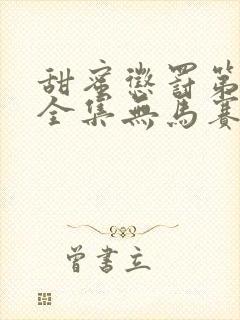 甜蜜懲罰第
全集無馬賽
曾書立